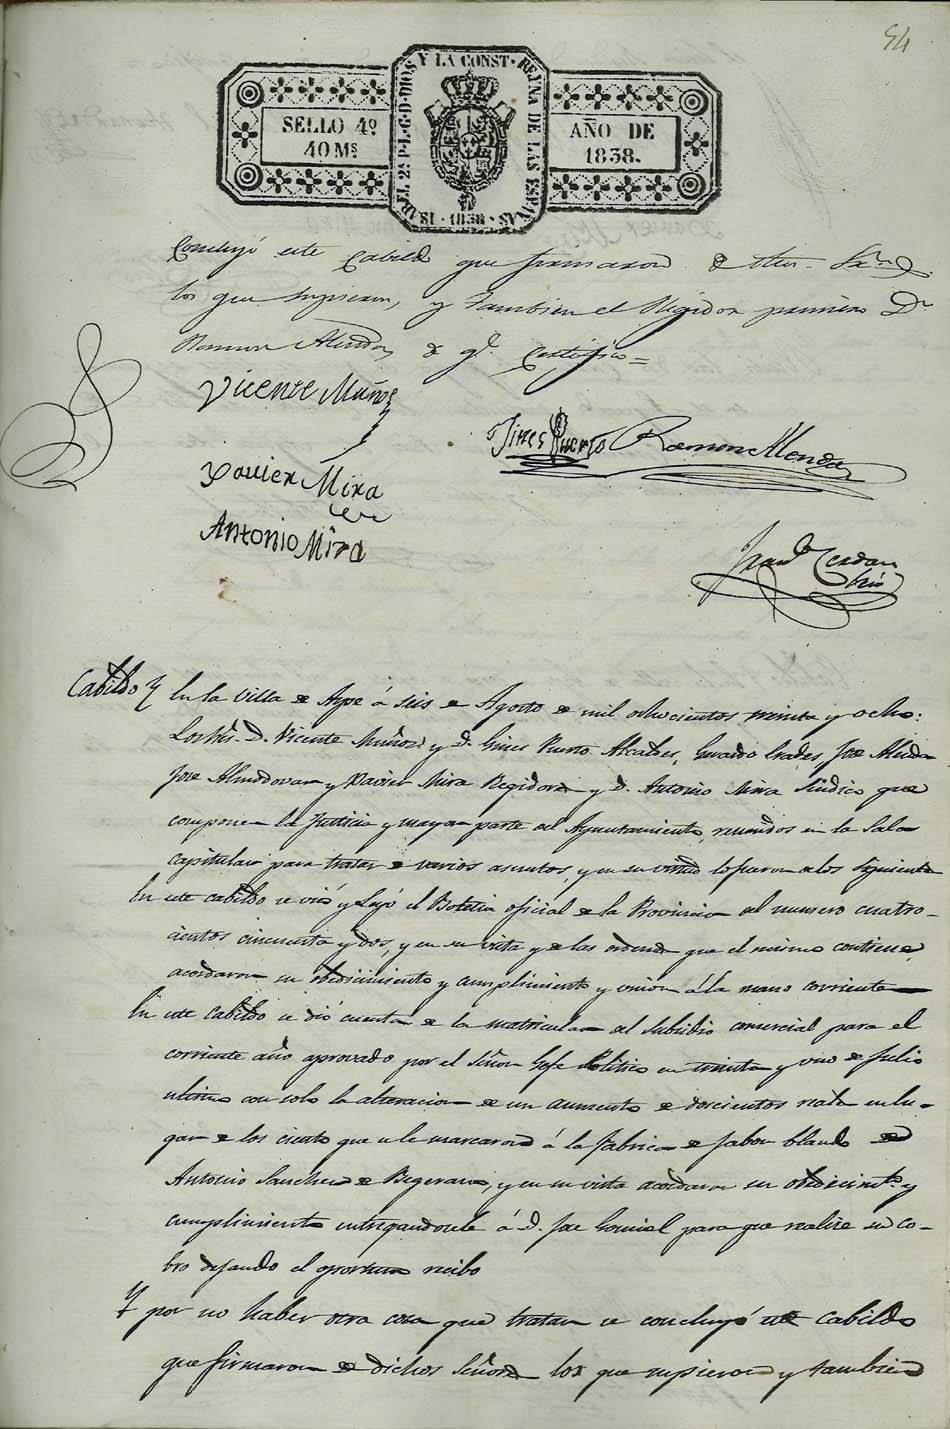 54
ISABEL 2ª P. L. G. D. DIOS Y LA CONST. REYNA DE LAS ESPAÑAS · 1838 ·
SELLO 4º
40 Ms
AÑO DE
1838.
Concluyó este Cabildo que firmaron de dhos. Sres.
los que supieron, y tambien el Regidor primero Dn
Ramon Alenda, de qe. certifico=
Vicente Muñoz
Gines Puerto Ramon Alenda
Xavier Mira
Antonio Mira
Franco Cerdan
Srio
Cabildo Y En la Villa de Aspe á seis de Agosto de mil ochocientos treinta y ocho:
Los Sres. D. Vicente Muñoz y D. Gines Puerto Alcaldes, Jose Alenda
Jose Almodovar y Xavier Mira Regidores y D. Antonio Mira Sindico que
componen la Justicia y mayor parte del Ayuntamiento, reunidos en la Sala
capitular para tratar de varios asuntos, y en su virtud lo fueron de los siguientes
En este cabildo se vió y leyó el Boletin oficial de la Provincia del numero cuatro-
cientos cincuenta y dos, y en su vista y de las ordenes que el mismo contiene,
acordaron su obedecimiento y cumplimiento y union á la mano corriente
En este Cabildo se dió cuenta de la matricula del subsidio comercial para el
corriente año aprovado por el Señor Gefe Politico en treinta y uno de Julio
ultimo con solo la alteracion de un aumento de doscientos reales en lu-
gar de los ciento que se le marcaron á la fabrica de jabon blando de
Antonio Sanchez de Begerano, y en su vista acordaron su obedecimto. y
cumplimiento entregandosele á D. Jose para que realize su co-
bro dejando el oportuno recibo
Y por no haber otra cosa que tratar se concluyó este Cabildo
que firmaron de dichos Señores los que supieron y tambien